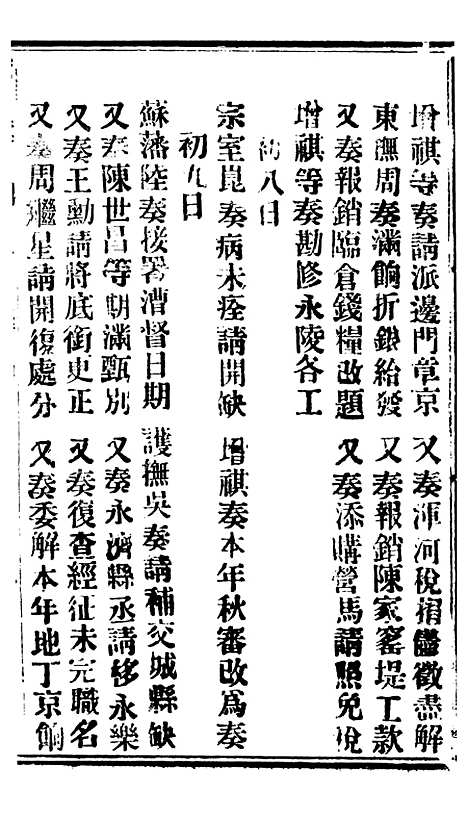 增祺等奏請派邊門章京　又奏渾河稅捐儘徵盡解
東撫周奏滿餉折銀給發　又奏報銷陳家窰堤工款
又奏報銷臨倉錢糧改題　又奏添購營馬請照免稅
增祺等奏勘修永陵各工
初八日
宗室崑奏病未痊請開缺　增祺奏本年秋審改爲奏
初九日
蘇藩陸奏接署漕督日期　護撫吳奏請補交城縣缺
又奏陳世昌等期滿甄別　又奏永濟縣丞請移永樂
又奏王勳請將底銜史正　又奏復查經征未完職名
又奏周繼星請開復處分　又奏委解本年地丁京餉